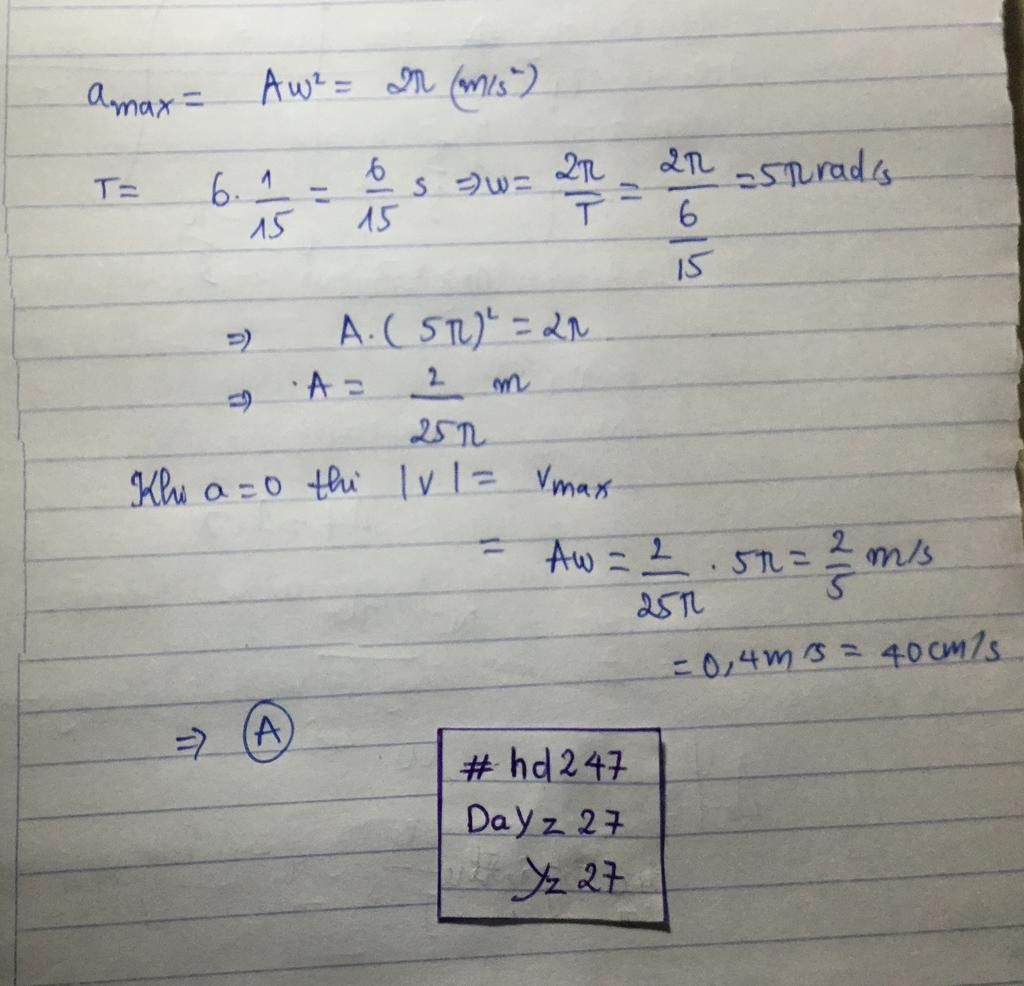 a_max = Aω² = 2π (m/s²)
T = 6. 1/15 = 6/15 s ⇒ ω = 2π/T = 2π/(6/15) = 5π rad/s
⇒ A.(5π)² = 2π
⇒ A = 2/(25π) m
Khi a = 0 thì |v| = v_max
= Aω = 2/(25π) . 5π = 2/5 m/s
= 0,4 m/s = 40 cm/s
⇒ A
# hd247
Dayz 27
Yz 27